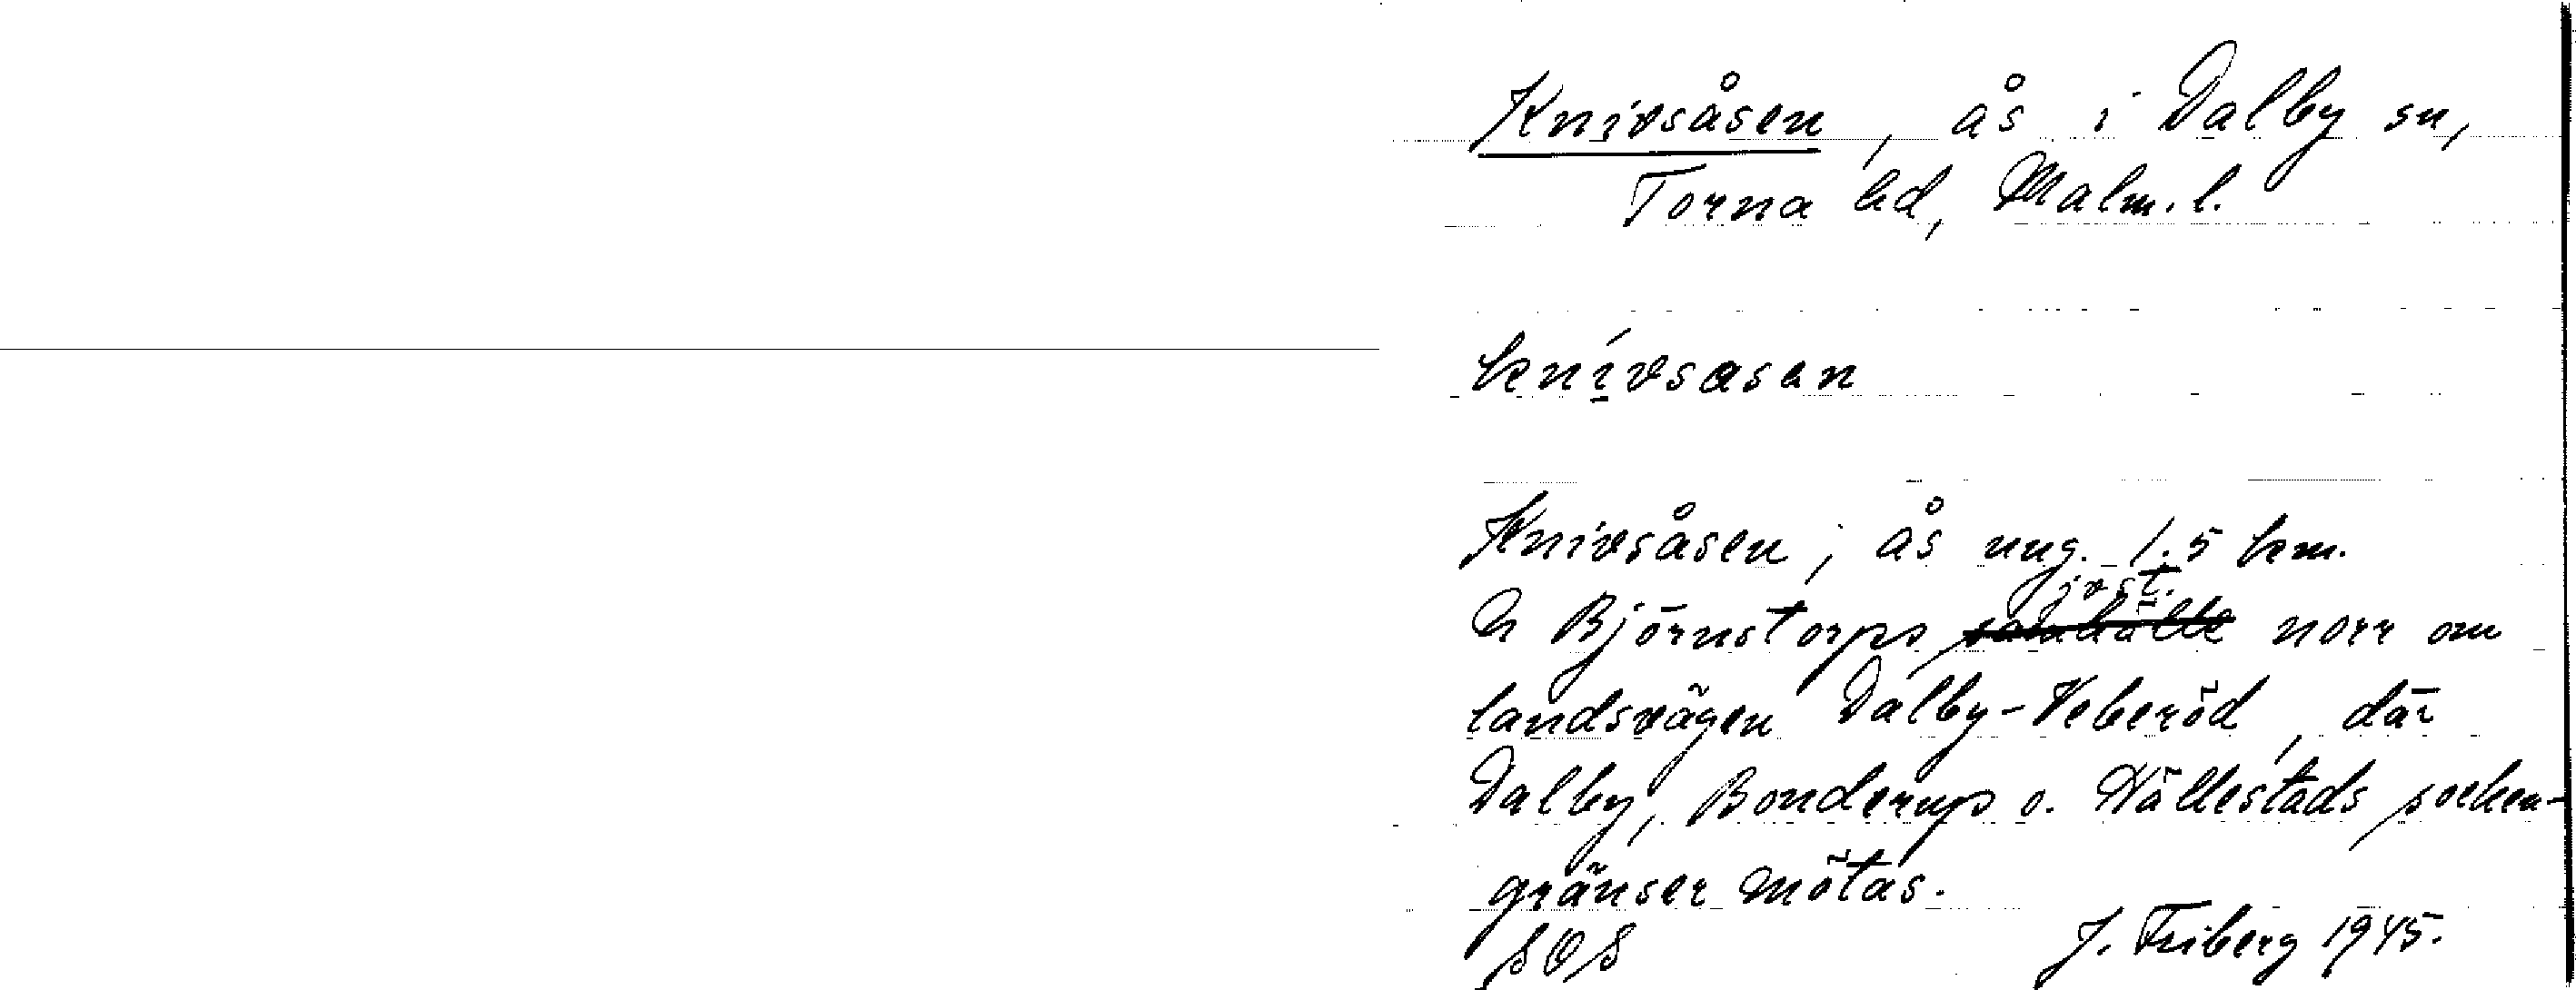 Knivsåsen, ås i Dalby sn,
Torna hd, Malm. l.
knívsasan
Knivsåsen; ås ung. 1.5 km.
jvst.
n Björnstorps samhälle norr om
landsvägen Dalby-Veberöd, där
Dalby, Bonderups o. Hällestads socken-
gränser mötas.
SOS J. Friberg 1945.